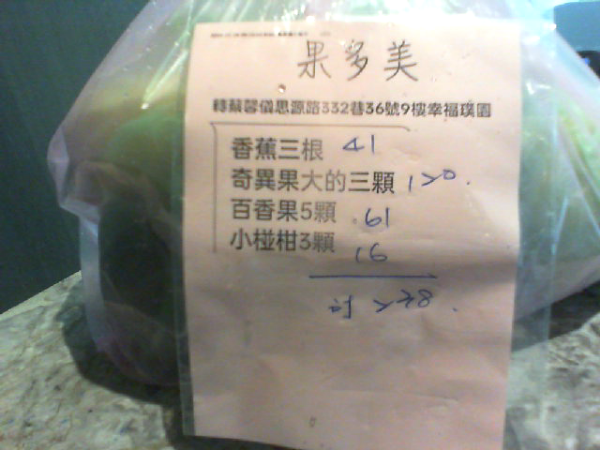 果多美
轉蘇馨儀思源路332巷36號9樓幸福璞園
香蕉三根 41
奇異果大的三顆 120.
百香果5顆 61
小椪柑3顆 16
計 238.